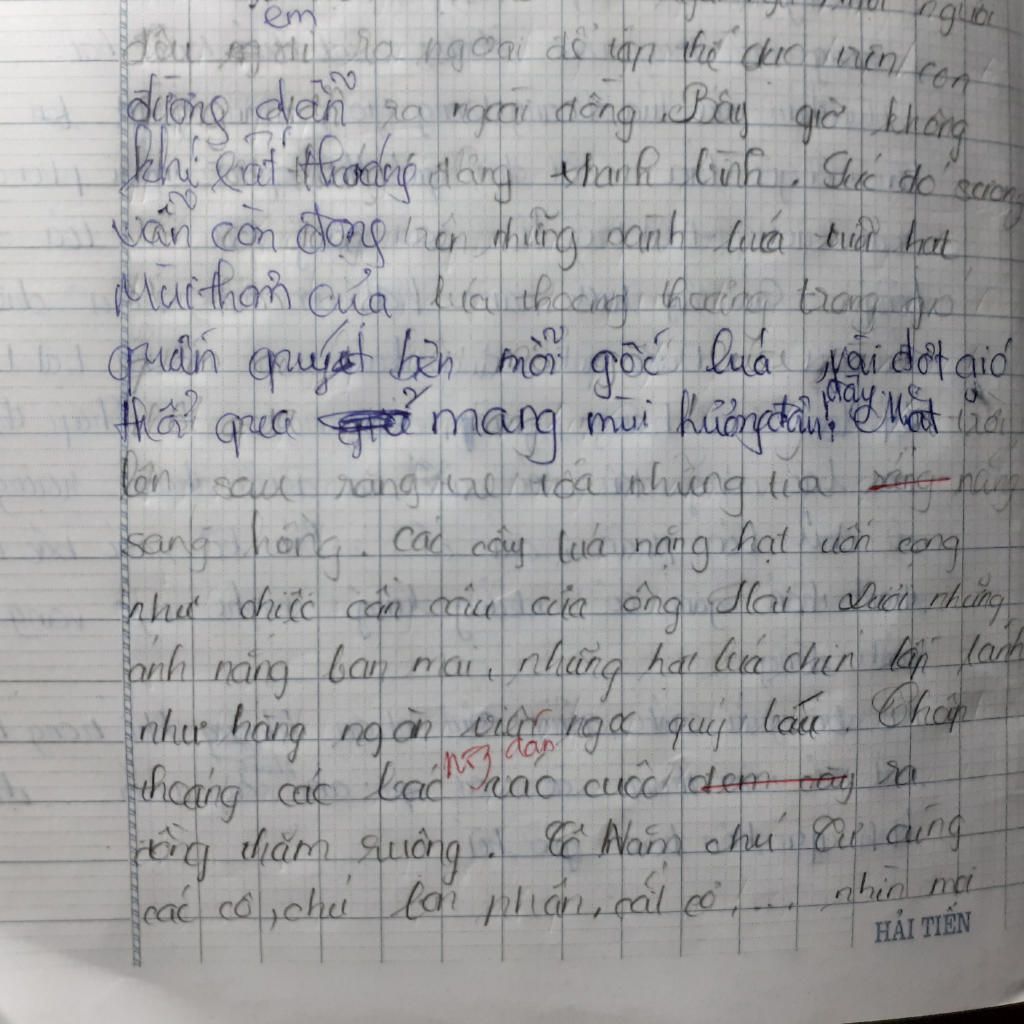 người
em
đều ra ngoài để tập thể dục trên con
đường dẫn ra ngoài đồng. Bây giờ không
khí rất thoáng đãng thanh bình. Lúc đó sương
vẫn còn đọng trên những cành lúa trũi hạt
Mùi thơm của lúa thoang thoảng trong gió
quấn quýt bên mỗi gốc luá vài đợt gió
thổi qua mang mùi hương đâu đây! Mặt trời
lên sau rặng tre toả những tia nắng
sang hồng. Các cây luá nặng hạt uốn cong
như chiếc cần câu của ông Hai Dưới những
ánh nắng ban mai, những hạt luá chín lấp lánh
như hàng ngàn viên ngọc quý báu. Thấp
nông dân
thoáng các bác vác cuốc ra
đồng thăm ruộng. Nam chú Tư cùng
các cô, chú bón phân, cắt cỏ, .... nhìn mọi
HẢI TIẾN